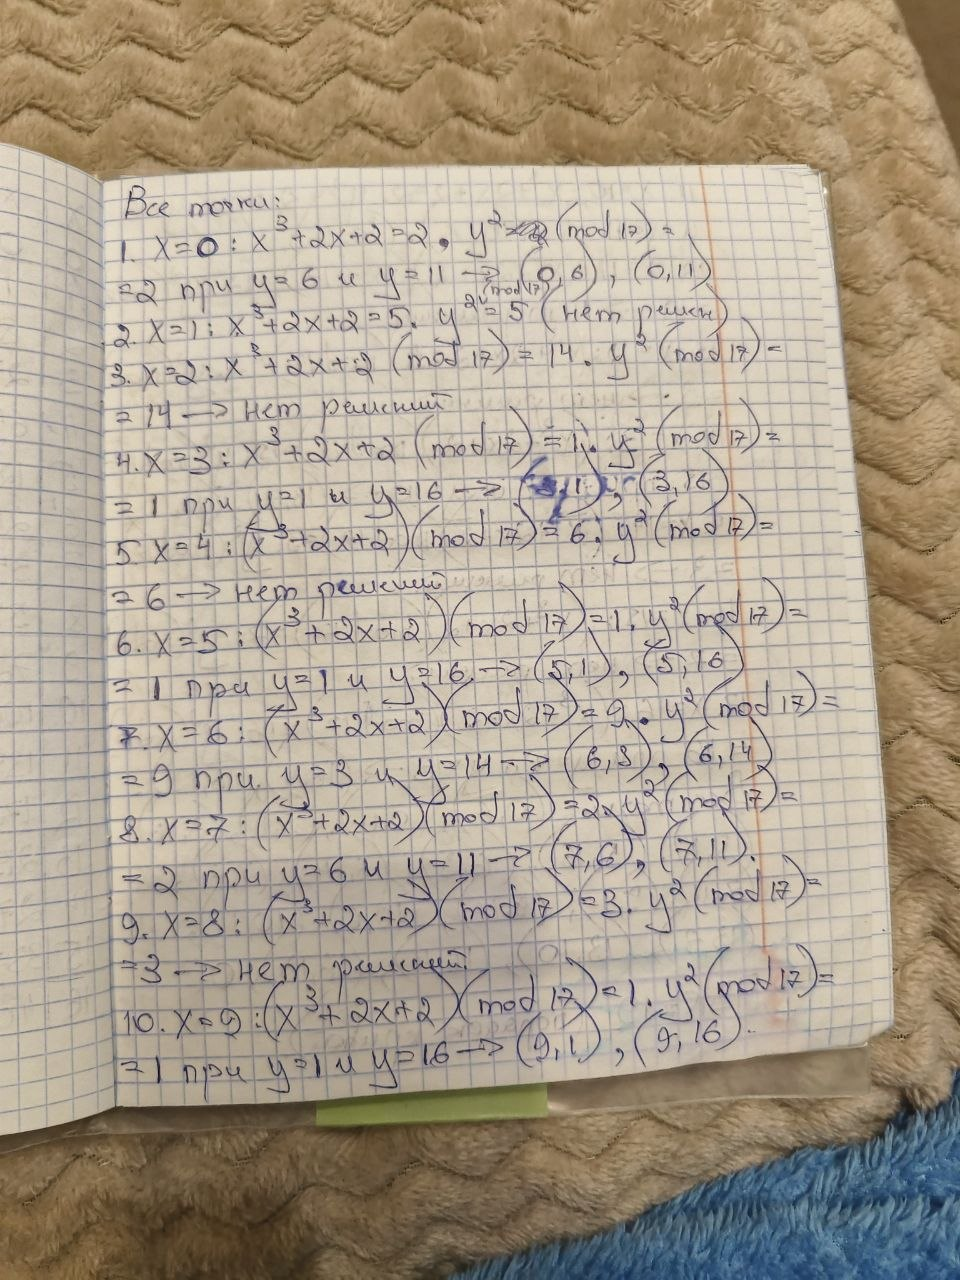 Все точки:
1. x=0: x³+2x+2=2. y² (mod 17)=
=2 при y=6 и y=11 → (0,6), (0,11)
2. x=1: x³+2x+2=5. y² (mod 17)=5 (нет решен)
3. x=2: x³+2x+2 (mod 17)=14. y² (mod 17)=
=14 → нет решений
4. x=3: x³+2x+2 (mod 17)=1. y² (mod 17)=
=1 при y=1 и y=16 → (3,1), (3,16)
5. x=4: (x³+2x+2)(mod 17)=6. y² (mod 17)=
=6 → нет решений
6. x=5: (x³+2x+2)(mod 17)=1. y² (mod 17)=
=1 при y=1 и y=16 → (5,1), (5,16)
7. x=6: (x³+2x+2)(mod 17)=9. y² (mod 17)=
=9 при y=3 и y=14 → (6,3), (6,14)
8. x=7: (x³+2x+2)(mod 17)=2. y² (mod 17)=
=2 при y=6 и y=11 → (7,6), (7,11).
9. x=8: (x³+2x+2)(mod 17)=3. y² (mod 17)=
=3 → нет решений
10. x=9: (x³+2x+2)(mod 17)=1. y² (mod 17)=
=1 при y=1 и y=16 → (9,1), (9,16).